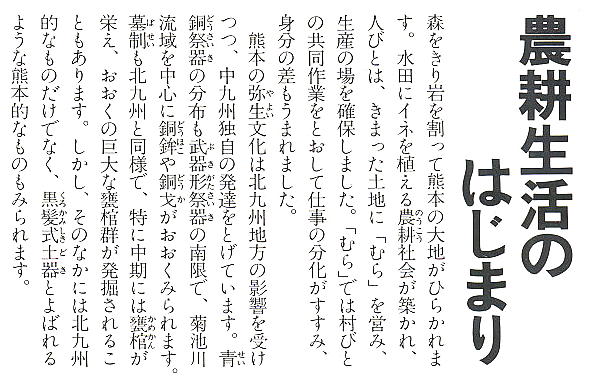 農耕生活の
はじまり
森をきり岩を割って熊本の大地がひらかれま
す。水田にイネを植える農耕社会が築かれ、
人びとは、きまった土地に「むら」を営み、
生産の場を確保しました。「むら」では村びと
の共同作業をとおして仕事の分化がすすみ、
身分の差もうまれました。
熊本の弥生文化は北九州地方の影響を受け
つつ、中九州独自の発達をとげています。青
銅祭器の分布も武器形祭器の南限で、菊池川
流域を中心に銅鉾や銅戈がおおくみられます。
墓制も北九州と同様で、特に中期には甕棺が
栄え、おおくの巨大な甕棺群が発掘されるこ
ともあります。しかし、そのなかには北九州
的なものだけでなく、黒髪式土器とよばれる
ような熊本的なものもみられます。